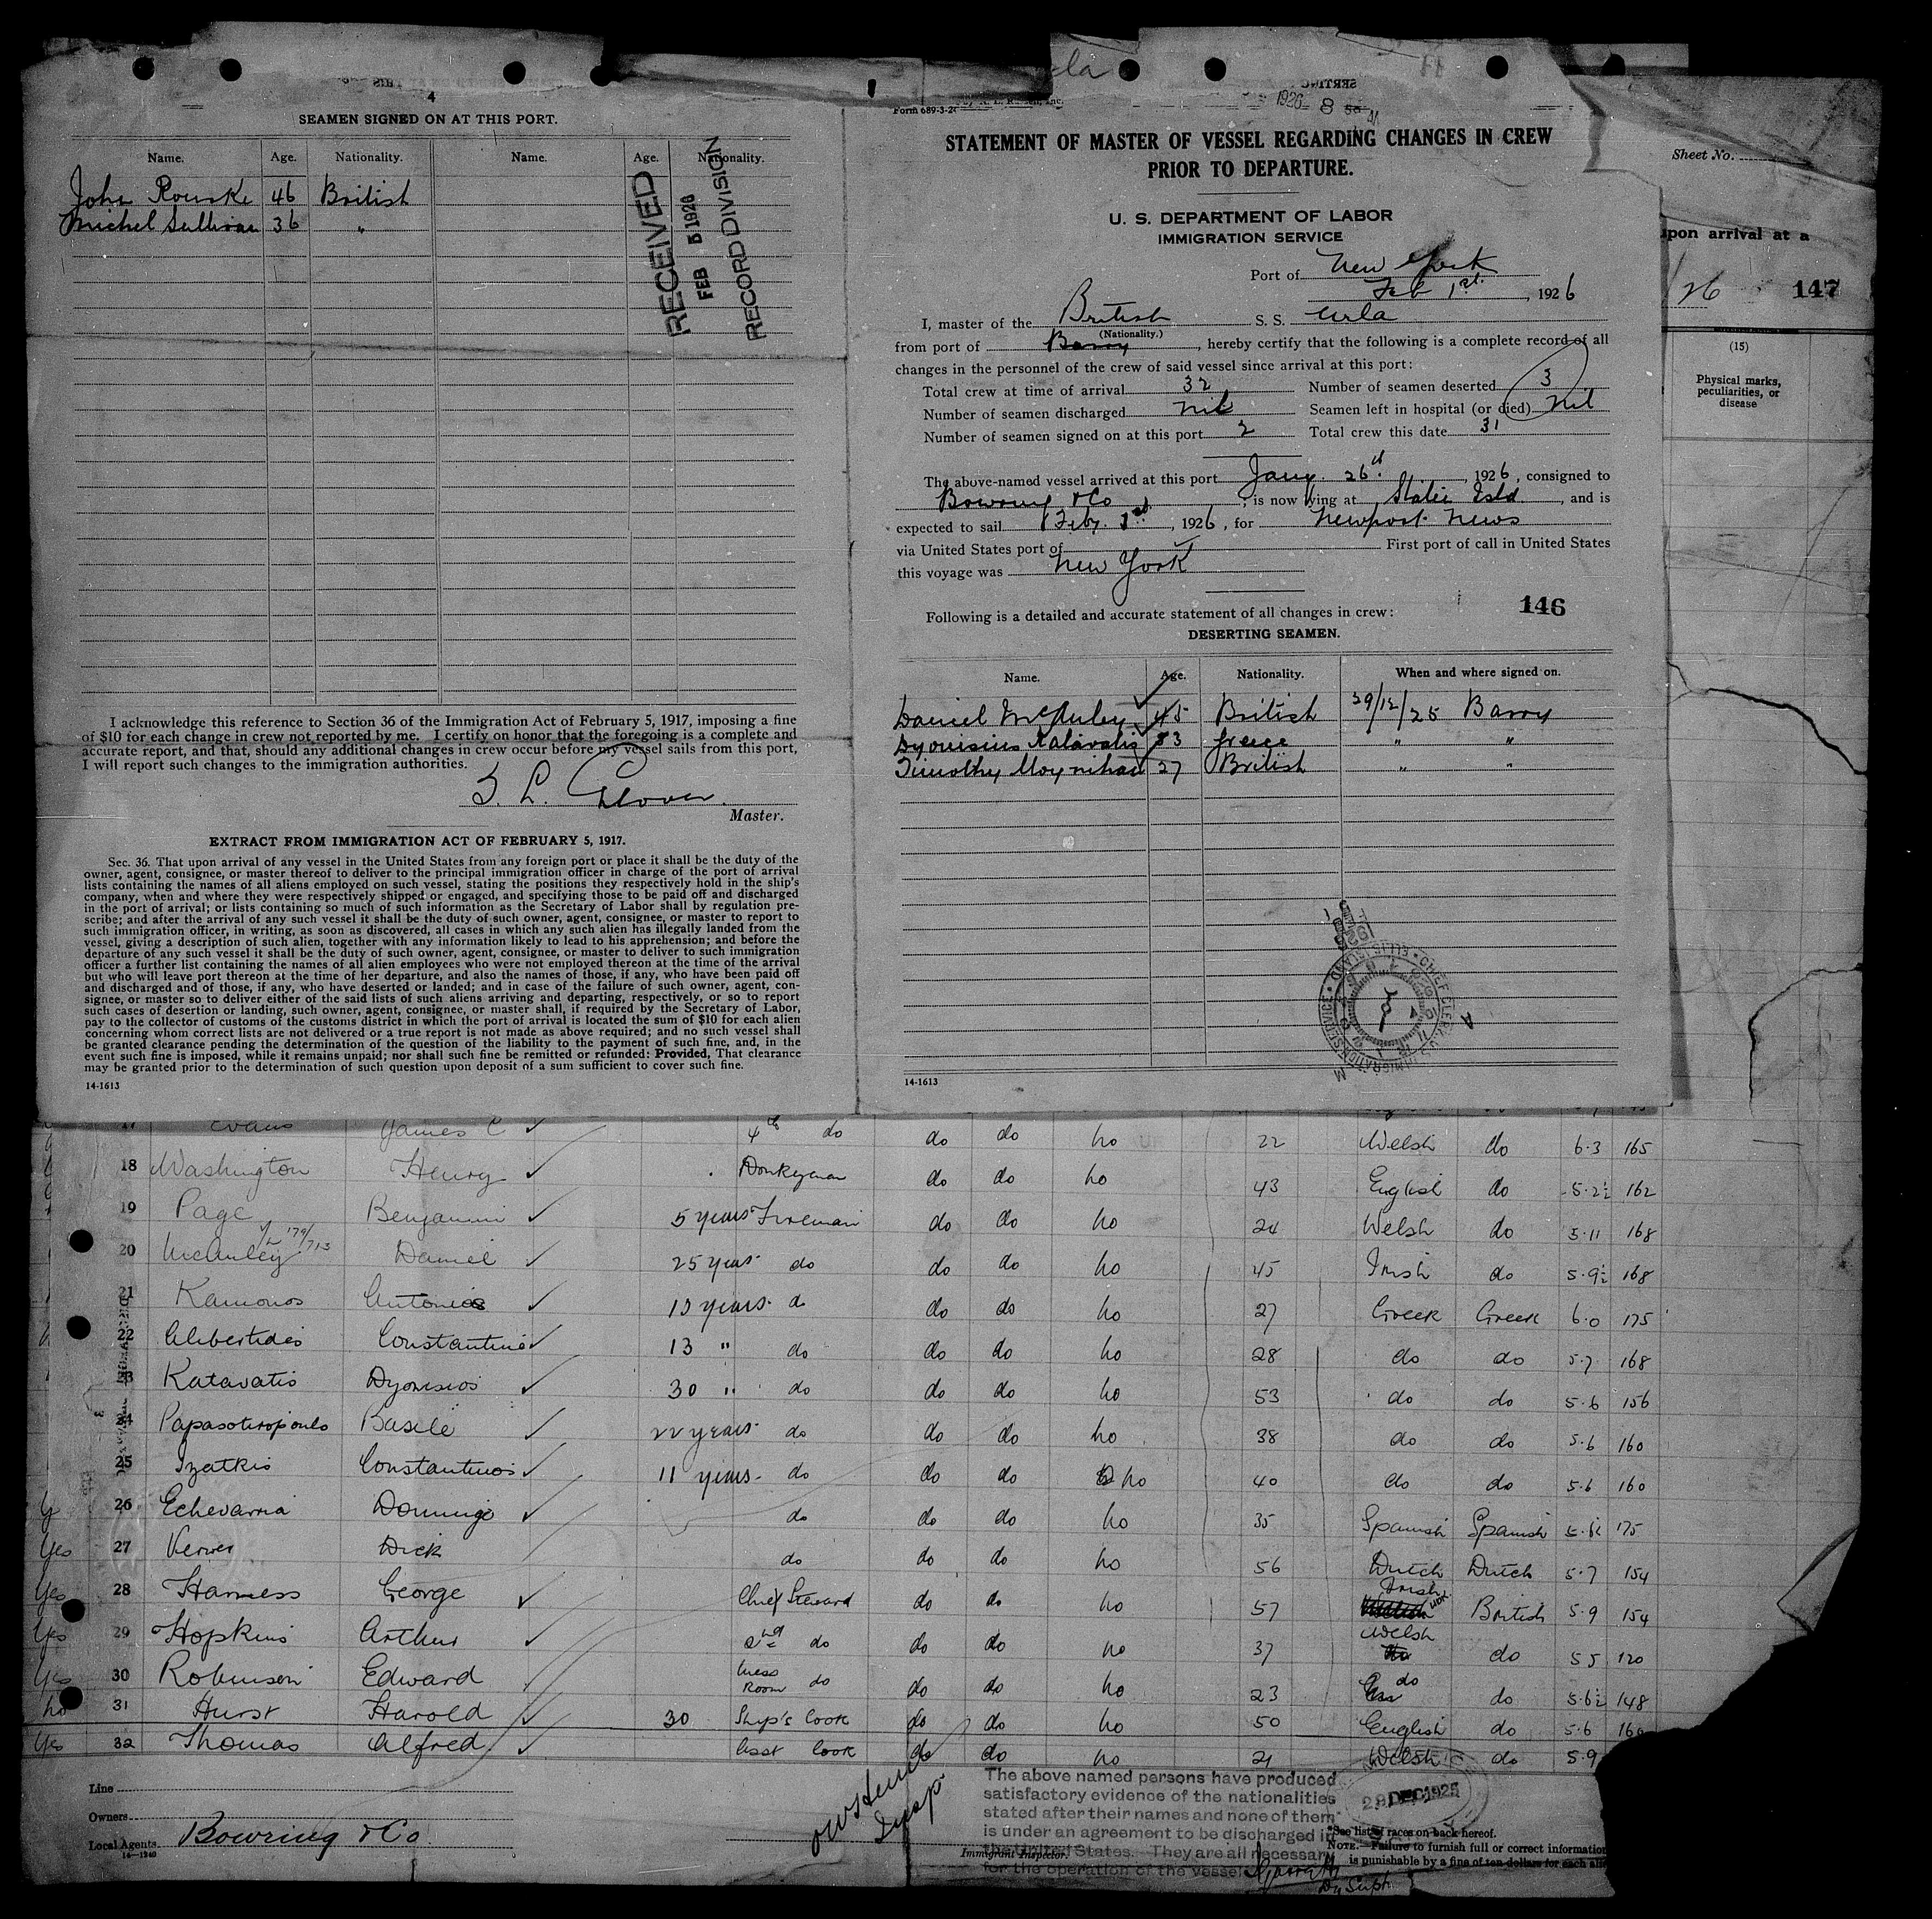 4
SEAMEN SIGNED ON AT THIS PORT.
Name. Age. Nationality. Name. Age. Nationality.
John Rourke 46 British
Michel Sullivan 36 "
RECEIVED
FEB 5 1926
RECORD DIVISION
I acknowledge this reference to Section 36 of the Immigration Act of February 5, 1917, imposing a fine
of $10 for each change in crew not reported by me. I certify on honor that the foregoing is a complete and
accurate report, and that, should any additional changes in crew occur before my vessel sails from this port,
I will report such changes to the immigration authorities.
Glover
Master.
EXTRACT FROM IMMIGRATION ACT OF FEBRUARY 5, 1917.
Sec. 36. That upon arrival of any vessel in the United States from any foreign port or place it shall be the duty of the
owner, agent, consignee, or master thereof to deliver to the principal immigration officer in charge of the port of arrival
lists containing the names of all aliens employed on such vessel, stating the positions they respectively hold in the ship's
company, when and where they were respectively shipped or engaged, and specifying those to be paid off and discharged
in the port of arrival; or lists containing so much of such information as the Secretary of Labor shall by regulation pre-
scribe; and after the arrival of any such vessel it shall be the duty of such owner, agent, consignee, or master to report to
such immigration officer, in writing, as soon as discovered, all cases in which any such alien has illegally landed from the
vessel, giving a description of such alien, together with any information likely to lead to his apprehension; and before the
departure of any such vessel it shall be the duty of such owner, agent, consignee, or master to deliver to such immigration
officer a further list containing the names of all alien employees who were not employed thereon at the time of the arrival
but who will leave port thereon at the time of her departure, and also the names of those, if any, who have been paid off
and discharged and of those, if any, who have deserted or landed; and in case of the failure of such owner, agent, con-
signee, or master so to deliver either of the said lists of such aliens arriving and departing, respectively, or so to report
such cases of desertion or landing, such owner, agent, consignee, or master shall, if required by the Secretary of Labor,
pay to the collector of customs of the customs district in which the port of arrival is located the sum of $10 for each alien
concerning whom correct lists are not delivered or a true report is not made as above required; and no such vessel shall
be granted clearance pending the determination of the question of the liability to the payment of such fine, and, in the
event such fine is imposed, while it remains unpaid; nor shall such fine be remitted or refunded: Provided, That clearance
may be granted prior to the determination of such question upon deposit of a sum sufficient to cover such fine.
14-1613
Form 689-3-2
1926
STATEMENT OF MASTER OF VESSEL REGARDING CHANGES IN CREW
PRIOR TO DEPARTURE.
U. S. DEPARTMENT OF LABOR
IMMIGRATION SERVICE
Port of New York
Feb 1st, 1926
I, master of the British S. S. Urla
(Nationality.)
from port of Barry, hereby certify that the following is a complete record of all
changes in the personnel of the crew of said vessel since arrival at this port:
Total crew at time of arrival 32 Number of seamen deserted 3
Number of seamen discharged Nil Seamen left in hospital (or died) Nil
Number of seamen signed on at this port 2 Total crew this date 31
The above-named vessel arrived at this port Jany. 26th, 1926, consigned to
Bowring & Co, is now lying at Staten Isld, and is
expected to sail Feby. 1st, 1926, for Newport News
via United States port of First port of call in United States
this voyage was New York
Following is a detailed and accurate statement of all changes in crew:
146
DESERTING SEAMEN.
Name. Age. Nationality. When and where signed on.
Daniel McAuley 45 British 29/12/25 Barry
Dyonisius Katavatis 53 Greece " "
Timothy Moynihan 27 British " "
14-1613
Sheet No.
upon arrival at a
/26 147
(15)
Physical marks,
peculiarities, or
disease
17 Evans James C 4th do do do no 22 Welsh do 6.3 165
18 Washington Henry Donkeyman do do no 43 English do 5.2½ 162
19 Page Benjamin 5 years Fireman do do no 24 Welsh do 5.11 168
20 McAuley 179/713 Daniel 25 years do do do no 45 Irish do 5.9½ 168
21 Kamonos Antonios 10 years do do do no 27 Greek Greek 6.0 175
22 Alibertides Constantine 13 " do do do no 28 do do 5.7 168
23 Katavatis Dyonisios 30 " do do do no 53 do do 5.6 156
24 Papasotiropoulo Basile 22 years do do do no 38 do do 5.6 160
25 Izatkis Constantinos 11 years do do do no 40 do do 5.6 160
26 Echevarria Domingo do do do no 35 Spanish Spanish 175
Yes 27 Verwer Dick do do do no 56 Dutch Dutch 5.7 154
Yes 28 Harness George Chief Steward do do no 57 Irish British 5.9 154
Yes 29 Hopkins Arthur 2nd do do do no 37 Welsh do 5.5 120
Yes 30 Robinson Edward Mess Room do do do no 23 do do 5.6½ 148
no 31 Hurst Harold 30 Ship's Cook do do no 50 English do 5.6 160
Yes 32 Thomas Alfred Asst Cook do do no 21 Welsh do 5.9
Line
Owners
Local Agents Bowring & Co
14-1240
Insp.
Immigrant Inspector.
The above named persons have produced
satisfactory evidence of the nationalities
stated after their names and none of them
is under an agreement to be discharged in
the United States. They are all necessary
for the operation of the vessel
28 DEC 1925
*See list of races on back hereof.
NOTE.—Failure to furnish full or correct information
is punishable by a fine of ten dollars for each